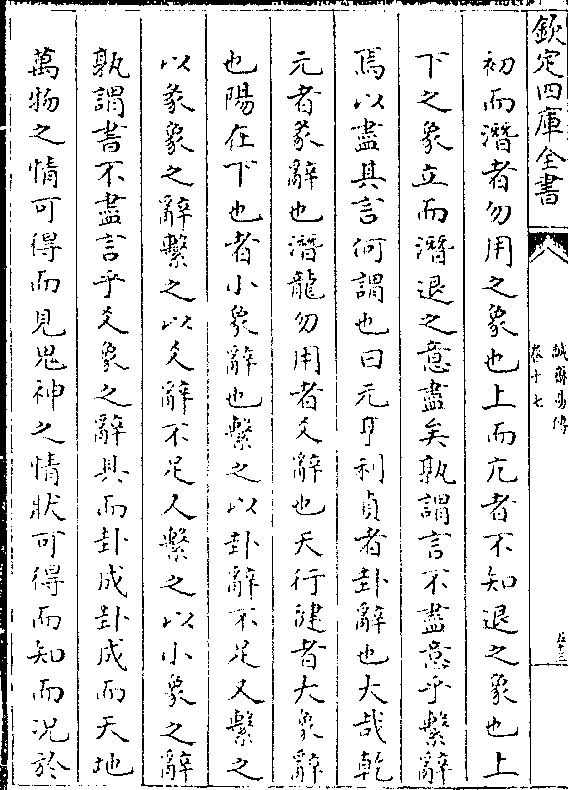 欽定四庫全書
誠齋易傳
卷十七
五十三
初而潛者勿用之象也上而亢者不知退之象也上
下之象立而潛退之意盡矣孰謂言不盡意乎繫辭
焉以盡其言何謂也曰元亨利貞者卦辭也大哉乾
元者彖辭也潛龍勿用者爻辭也天行健者大象辭
也陽在下也者小象辭也繫之以卦辭不足又繫之
以彖象之辭繫之以爻辭不足又繫之以小象之辭
孰謂書不盡言乎爻象之辭具而卦成卦成而天地
萬物之情可得而見鬼神之情狀可得而知而况於